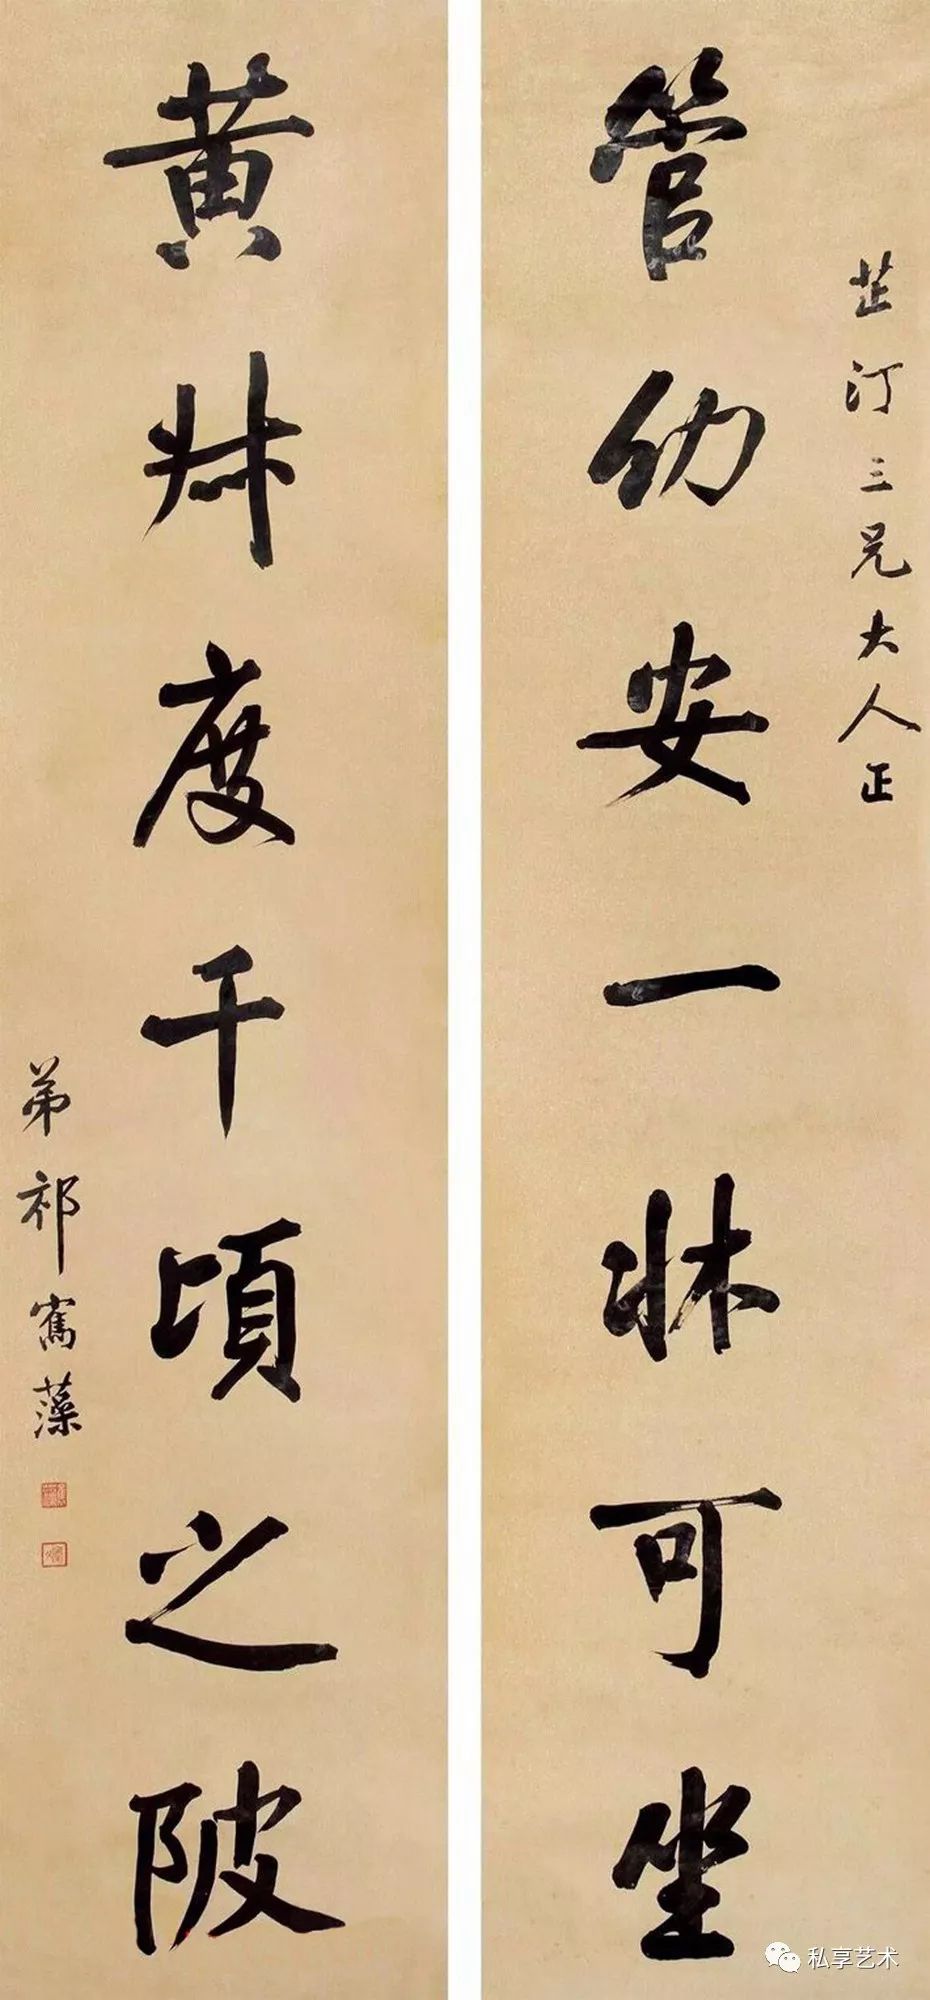 芷汀三兄大人正
管幼安一牀可坐
黃叔度千頃之陂
弟祁寯藻
私享艺术